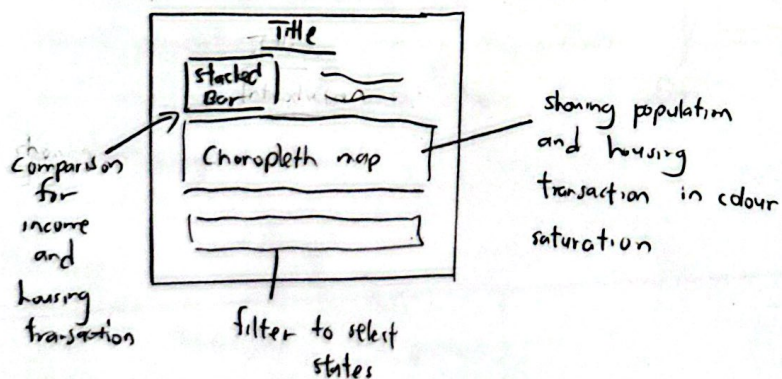 Title
Stacked
Bar
Choropleth map
comparison
for
income
and
housing
transaction
showing population
and housing
transaction in colour
saturation
filter to select
states